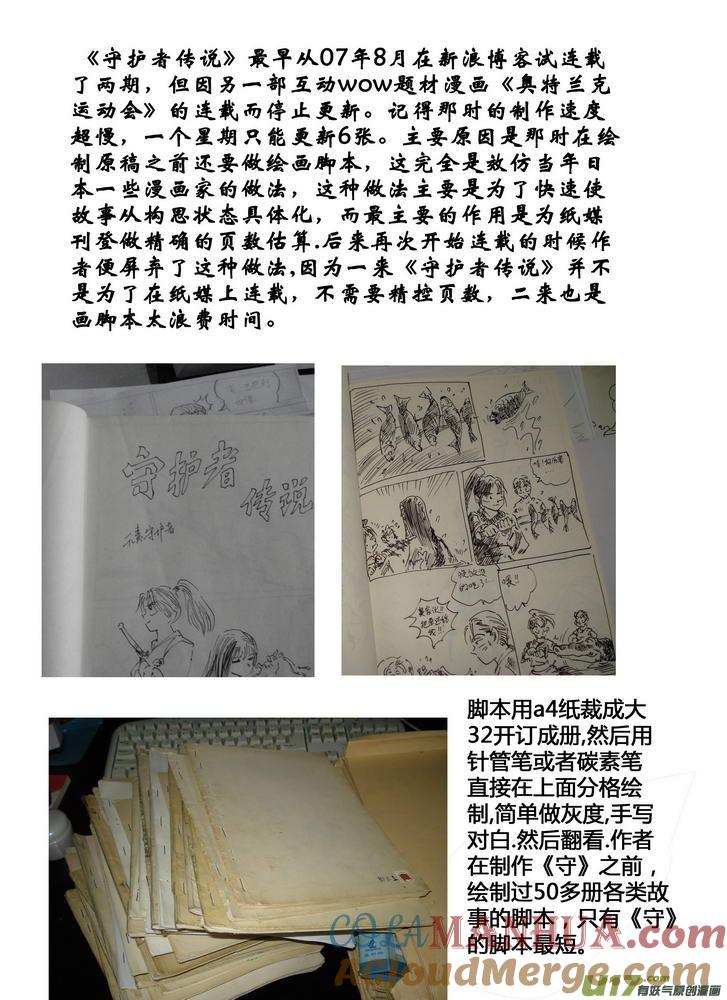 《守护者传说》最早从07年8月在新浪博客试连载
了两期，但因另一部互动wow题材漫画《奥特兰克
运动会》的连载而停止更新。记得那时的制作速度
超慢，一个星期只能更新6张。主要原因是那时在绘
制原稿之前还要做绘画脚本，这完全是效仿当年日
本一些漫画家的做法，这种做法主要是为了快速使
故事从构思状态具体化，而最主要的作用是为纸媒
刊登做精确的页数估算.后来再次开始连载的时候作
者便屏弃了这种做法,因为一来《守护者传说》并不
是为了在纸媒上连载，不需要精控页数，二来也是
画脚本太浪费时间。
守护者
传说
守护者
晚饭没
的吃了!
喂!!
脚本用a4纸裁成大
32开订成册,然后用
针管笔或者碳素笔
直接在上面分格绘
制,简单做灰度,手写
对白.然后翻看.作者
在制作《守》之前，
绘制过50多册各类故
事的脚本，只有《守》
的脚本最短。
COLAMANHUA.COM
AcloudMerge.com
U17.com
有妖气原创漫画